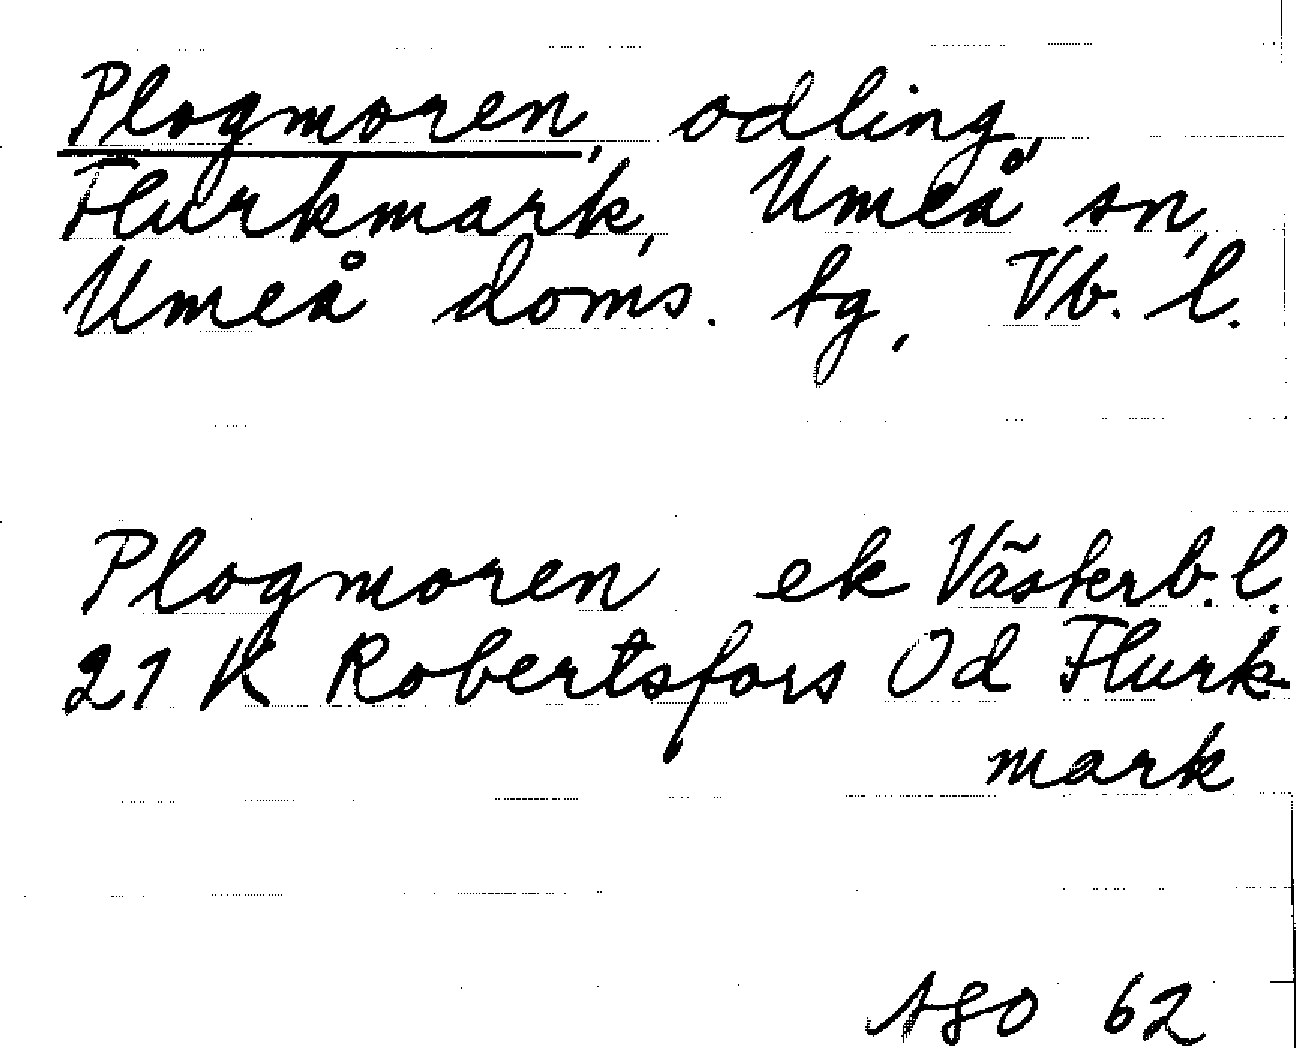 Plogmoren, odling,
Flurkmark, Umeå sn,
Umeå doms. tg, Vb. l.
Plogmoren ek Västerb. l.
21 K Robertsfors Od Flurk-
mark
ASO 62